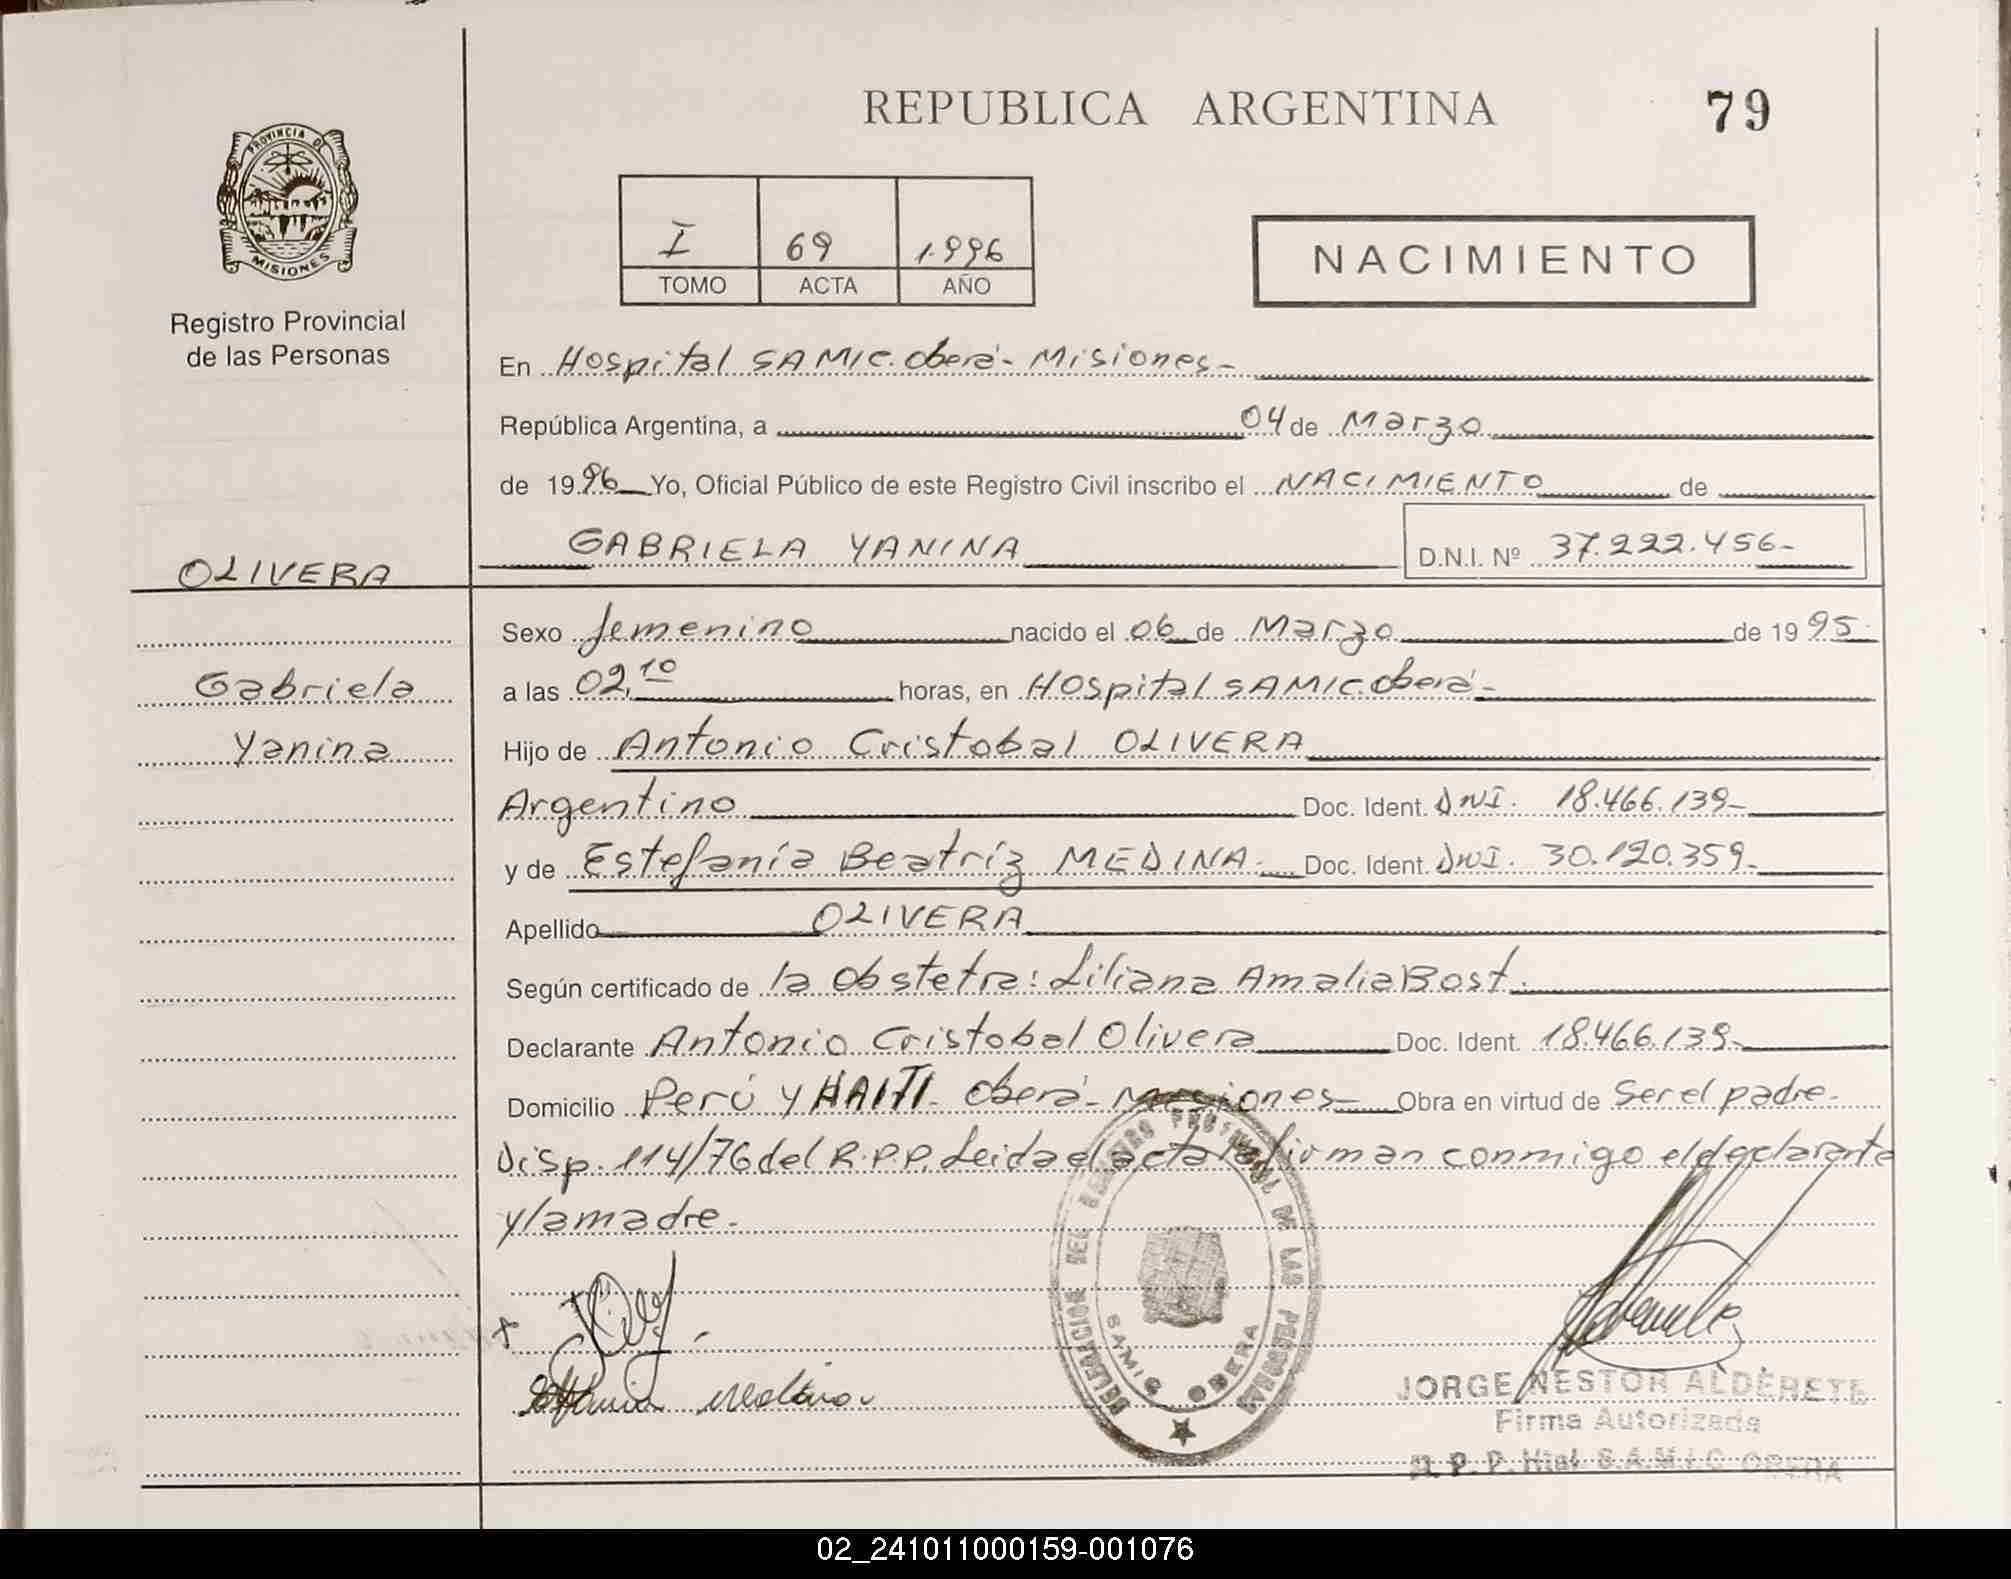 REPUBLICA ARGENTINA
79
PROVINCIA DE
MISIONES
Registro Provincial
de las Personas
I 69 1.996
TOMO ACTA AÑO
NACIMIENTO
En Hospital SAMIC. Oberá- Misiones-
República Argentina, a 04 de Marzo
de 1996 Yo, Oficial Público de este Registro Civil inscribo el NACIMIENTO de
GABRIELA YANINA D.N.I. Nº 37.222.456-
OLIVERA
Gabriela
Yanina
Sexo femenino nacido el 06 de Marzo de 1995
a las 02,10 horas, en Hospital SAMIC. Oberá-
Hijo de Antonio Cristobal OLIVERA
Argentino Doc. Ident. DNI. 18.466.139-
y de Estefanía Beatríz MEDINA. Doc. Ident. DNI. 30.120.359-
Apellido OLIVERA
Según certificado de la obstetra: Liliana Amalia Bost.
Declarante Antonio Cristobal Olivera Doc. Ident. 18.466.139-
Domicilio Perú y HAITI- Oberá- Misiones- Obra en virtud de Ser el padre-
Disp. 114/76 del R.P.P. Leida el acta la firman conmigo el declarante
y la madre-
Medina
DELEGACION DEL REGISTRO PROVINCIAL DE LAS PERSONAS
SAMIC OBERA
JORGE NESTOR ALDERETE
Firma Autorizada
R. P. P. Htal S.A.M.I.C OBERA
02_241011000159-001076